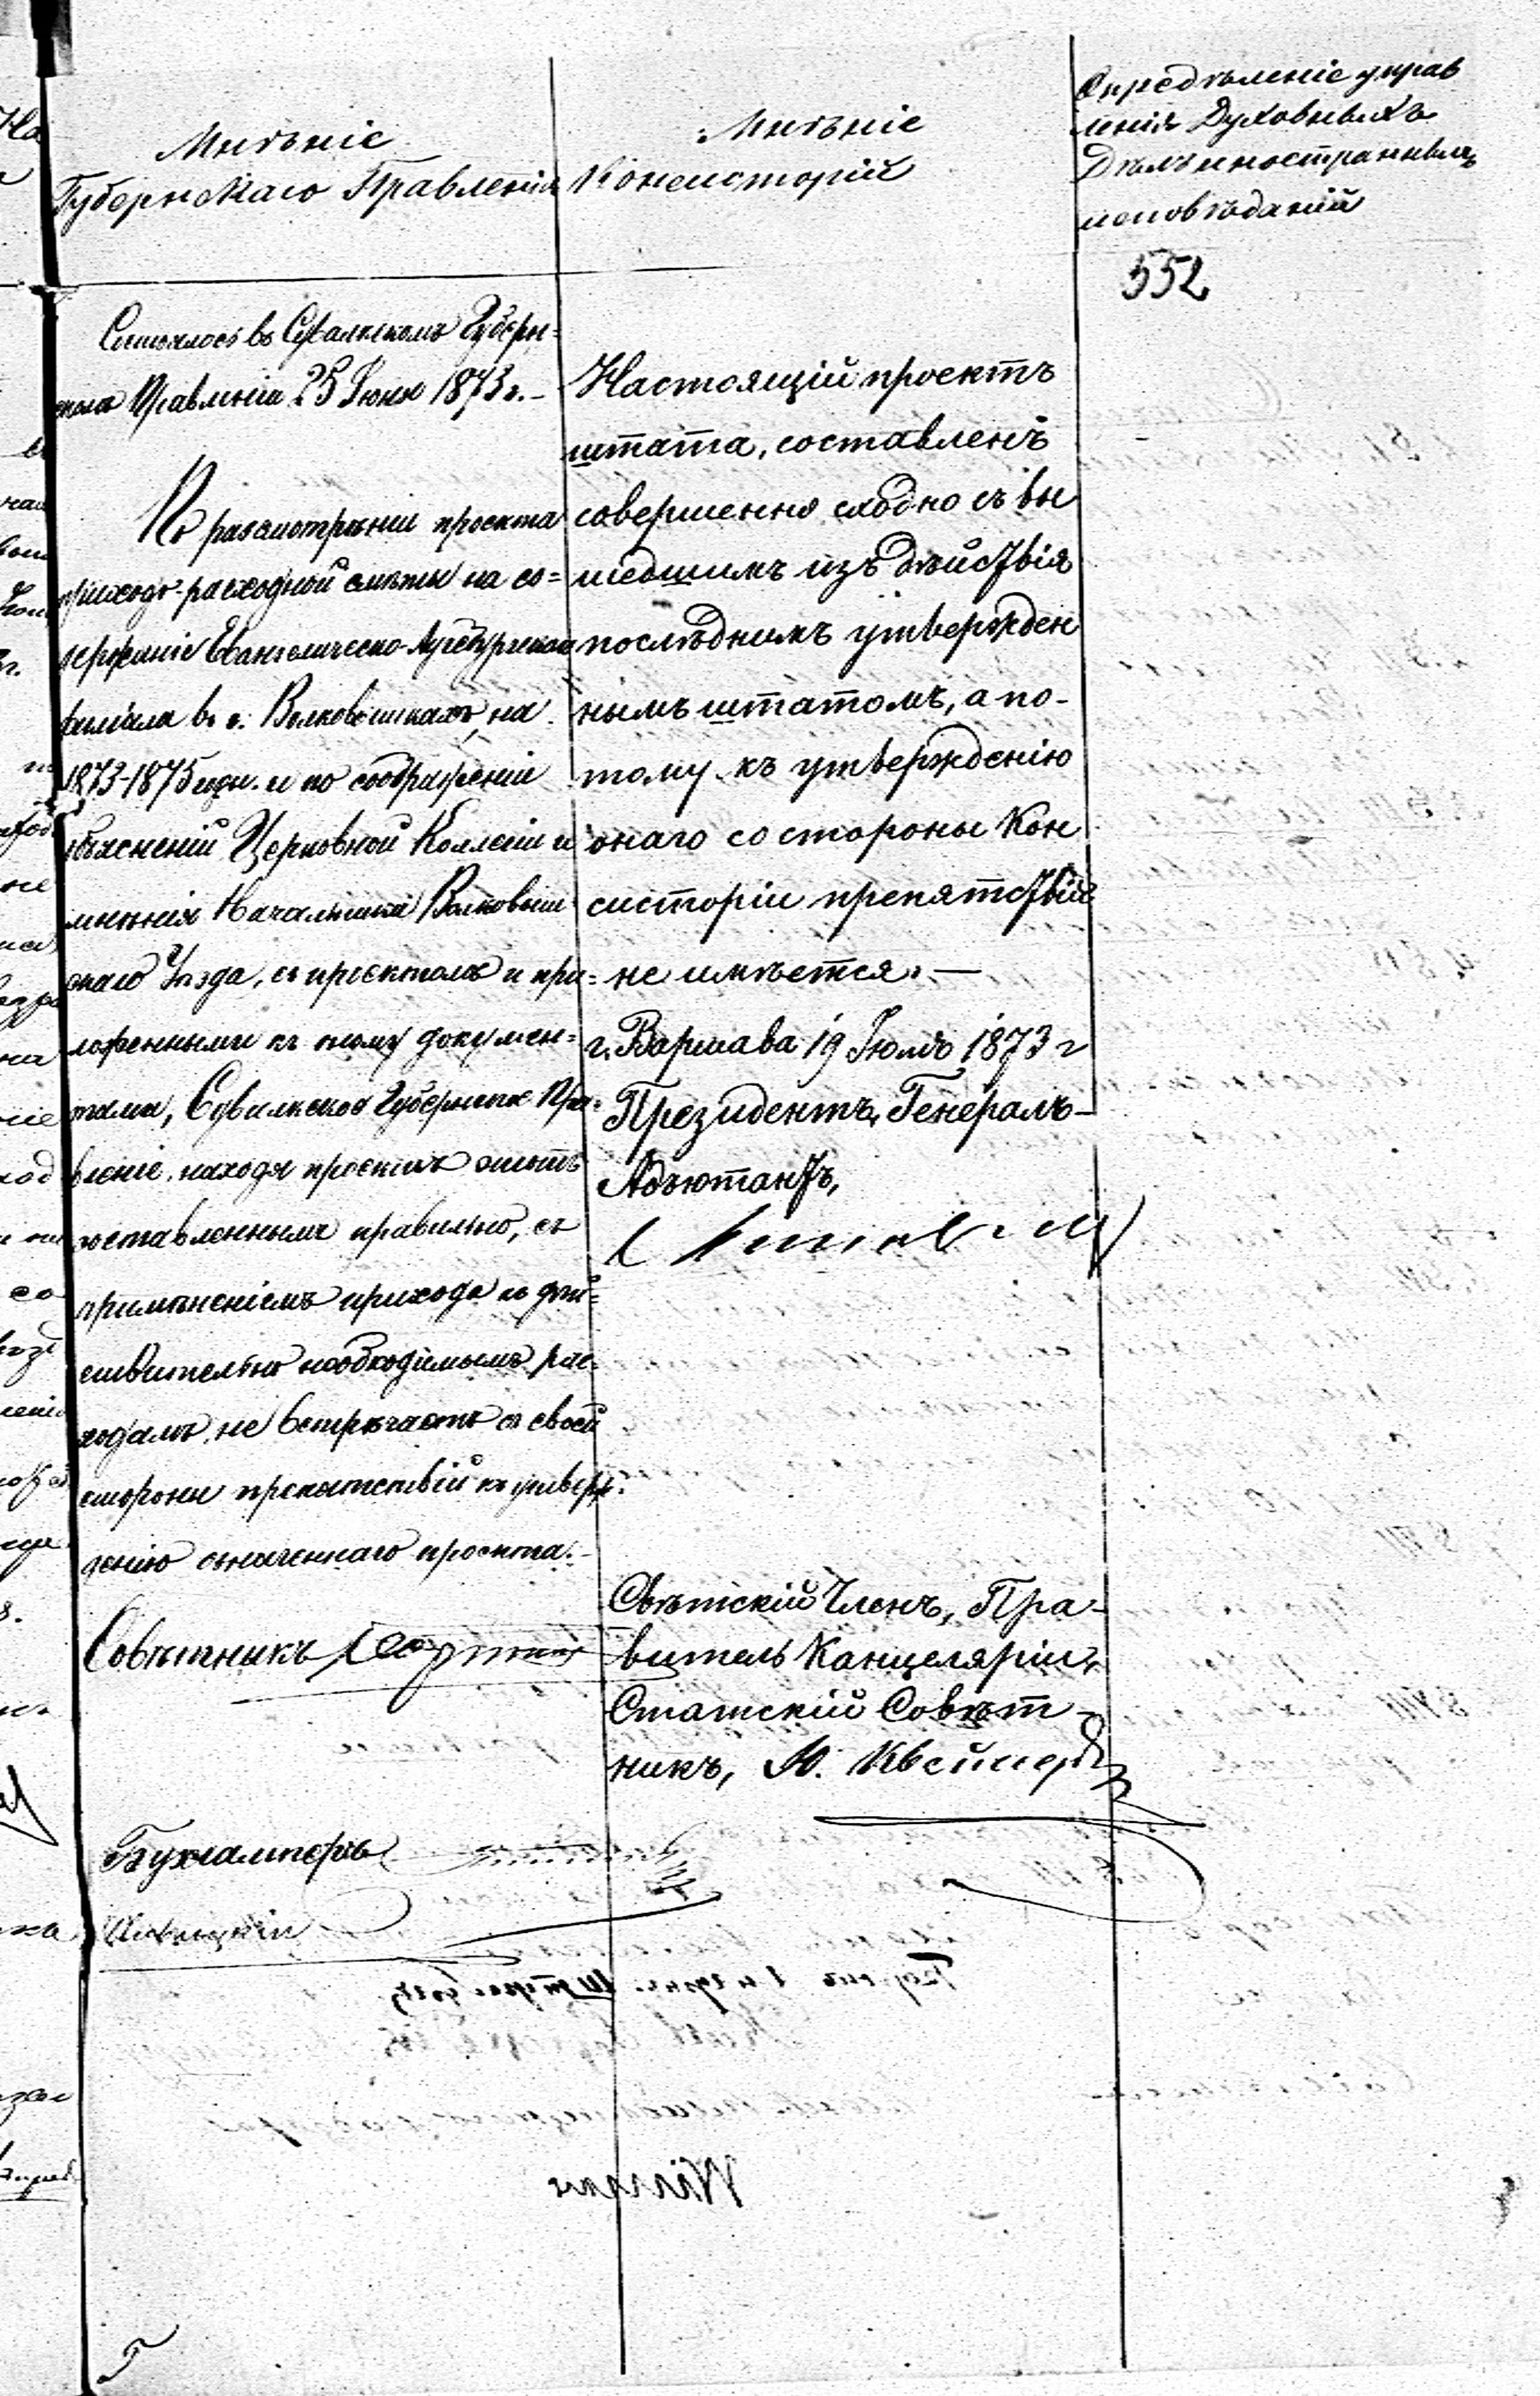 Мнѣніе
Губернскаго Правленія
Состоялось въ Сувалкскомъ Губерн=
скомъ Правленіи 25 Іюня 1873 г. –
По разсмотрѣніи проекта
приходо-расходной смѣты на со=
держаніе Евангелическо-Аугсбургскаго
филіала въ г. Волковишкахъ, на
1873-1875 годы. и по соображеніи
объясненій Церковной Коллегіи и
мнѣнія Начальника Волковыш
скаго Уѣзда, съ проектомъ и при=
ложенными къ оному докумен=
тами, Сувалкское Губернское Пра=
вленіе, находя проектъ смѣты
составленнымъ правильно, съ
примѣненіемъ прихода къ дѣй=
ствительно необходимымъ рас=
ходамъ, не встрѣчаетъ съ своей
стороны препятствій къ утверж=
денію означеннаго проекта. –
Совѣтникъ
Бухгалтеръ
Мнѣніе
Консисторіи
Настоящій проектъ
штата, составленъ
совершенно сходно съ вы
шедшимъ изъ дѣйствія
послѣднимъ утвержден
нымъ штатомъ, а по-
тому къ утвержденію
онаго со стороны Кон
систоріи препятствія
не имѣется. —
г. Варшава 19 Іюля 1873 г
Президентъ, Генералъ-
Адъютантъ,
Свѣтскій Членъ, Пра-
витель Канцеляріи,
Статскій Совѣт-
никъ,
Опредѣленіе управ
ленія Духовныхъ
Дѣлъ иностранныхъ
исповѣданій
552